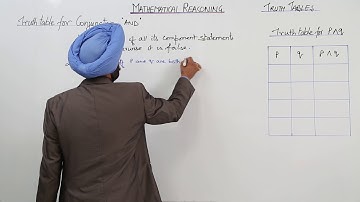 MATHEMATICAL REASONING
Truth table for Conjunction 'AND'
if all its component statements
it is false.
p and q are both
TRUTH TABLES
Truth table for P∧q
P q P∧q